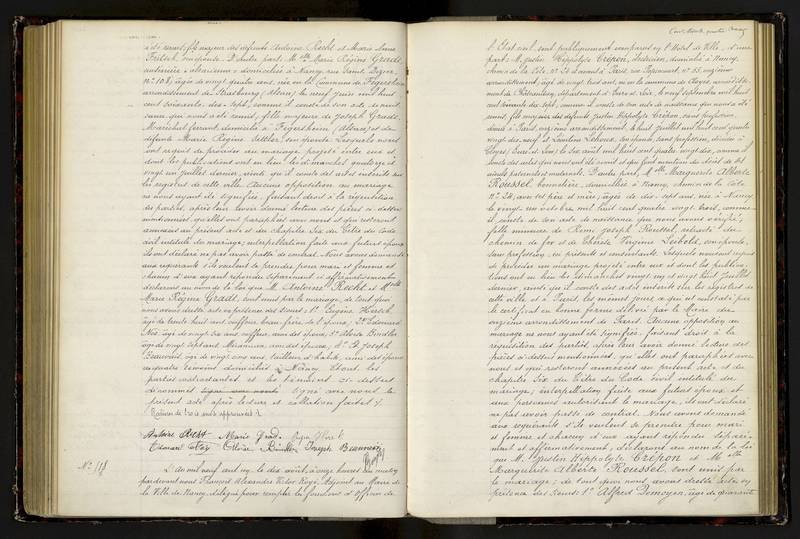 acte cerait, fils majeur des défunts Antoine Recht et Marie Anne
Fritsch, conjoints. D'autre part, Melle Marie Régine Gradt,
alsacienne, domiciliée à Nancy, rue Saint Dizier,
No 108, âgée de vingt quatre ans, née en la commune de Fégersheim
arrondissement de Strasbourg (Alsace) le neuf juin mil huit
cent soixante dix-sept, comme il conste de son acte de nais
sance qui nous a été remis, fille majeure de Joseph Gradt,
Maréchal ferrant domicilié à Fégersheim (Alsace) et de
défunte Marie Régine Sattler, son épouse. Lesquels nous
ont requis de procéder au mariage projeté entre eux et
dont les publications ont eu lieu les dimanches quatorze et
vingt un juillet dernier, ainsi qu'il conste des actes inscrits sur
les registres de cette ville. Aucune opposition au mariage
ne nous ayant été signifiée, faisant droit à la réquisition
des parties, après leur avoir donné lecture des pièces ci-dessus
mentionnées, qu'elles ont paraphées avec nous et qui resteront
annexées au présent acte et du chapitre Six du Titre du Code
civil intitulé du mariage; interpellation faite aux futurs époux
ils ont déclaré ne pas avoir passé de contrat. Nous avons demandé
aux requérants s'ils veulent se prendre pour mari et femme et
chacun d'eux ayant répondu séparément et affirmativement
déclarons au nom de la loi que M. Antoine Recht et Melle
Marie Régine Gradt, sont unis par le mariage, de tout quoi
nous avons dressé acte en présence des Sieurs: 1o Eugène Hertch,
âgé de trente huit ans, coiffeur, beau frère de l'épouse; 2o Edouard
Noé, âgé de vingt six ans, coiffeur, ami de l'époux; 3o Olivier Bindler
âgé de vingt sept ans, Mécanicien, ami de l'époux; 4o et Joseph
Beauvoin, âgé de vingt cinq ans, tailleur d'habits, ami des époux
les quatre témoins domiciliés à Nancy. Et ont les
parties contractantes et les témoins ci-dessus
dénommés signé avec nous le
présent acte après lecture et collation faites./.
Antoine Recht Marie Gradt
Edouard Noé Olivier Bindler Joseph Beauvoin
No 118
L'an mil neuf cent un, le dix août, à onze heures du matin
pardevant nous François Alexandre Victor Royé, Adjoint au Maire de
la Ville de Nancy, délégué pour remplir les fonctions d'Officier de
l'Etat civil sont publiquement comparus en l'Hôtel de Ville, d'une
part, M. Justin Hippolyte Crépon, domicilié à Nancy,
chemin de la Côte, No 54 avant à Paris, rue Popincourt, No 55, onzième
arrondissement, âgé de vingt trois ans, né en la commune de Cloyes, arrondisse
ment de Châteaudun, département d'Eure et Loir, le neuf septembre mil huit
cent soixante dix sept, comme il conste de son acte de naissance qui nous a été
remis, fils majeur des défunts Justin Hippolyte Crépon, sans profession,
décédé à Paris, onzième arrondissement, le huit juillet mil huit cent quatre
vingt dix neuf et
Cloyes, Eure et Loir, le six août mil huit cent quatre vingt dix, comme il
conste des actes qui nous ont été remis et qui font mention du décès de ses
aïeuls paternels et maternels. D'autre part, Melle Marguerite Alberte
Roussel, domiciliée à Nancy, chemin de la Côte
No 54, avec ses père et mère, âgée de dix sept ans, née à Nancy
le vingt un octobre mil huit cent quatre vingt trois, comme
il conste de son acte de naissance que nous avons vérifié,
fille mineure de Remi Joseph Roussel, retraité du
chemin de fer et de Thérèse Virginie Leibold, son épouse,
sans profession, ici présents et consentants. Lesquels nous ont requis
de procéder au mariage projeté entre eux et dont les publica
tions ont eu lieu les dimanches vingt un et vingt huit juillet
dernier, ainsi qu'il conste des actes inscrits sur les registres de
cette ville et à Paris, les mêmes jours, ce qui est constaté par
le certificat en bonne forme délivré par le Maire du
onzième arrondissement de Paris. Aucune opposition au
mariage ne nous ayant été signifiée, faisant droit à la
réquisition des parties après leur avoir donné lecture des
pièces ci-dessus mentionnées, qu'elles ont paraphées avec
nous et qui resteront annexées au présent acte et du
chapitre Six du Titre du Code civil intitulé du
mariage; interpellation faite aux futurs époux et
aux personnes autorisant le mariage, ils ont déclaré
ne pas avoir passé de contrat. Nous avons demandé
aux requérants s'ils veulent se prendre pour mari
et femme et chacun d'eux ayant répondu séparé
ment et affirmativement, déclarons au nom de la loi
que M. Justin Hippolyte Crépon et Melle
Marguerite Alberte Roussel, sont unis par
le mariage; de tout quoi nous avons dressé acte en
présence des Sieurs: 1o Alfred Demoyen, âgé de quarante